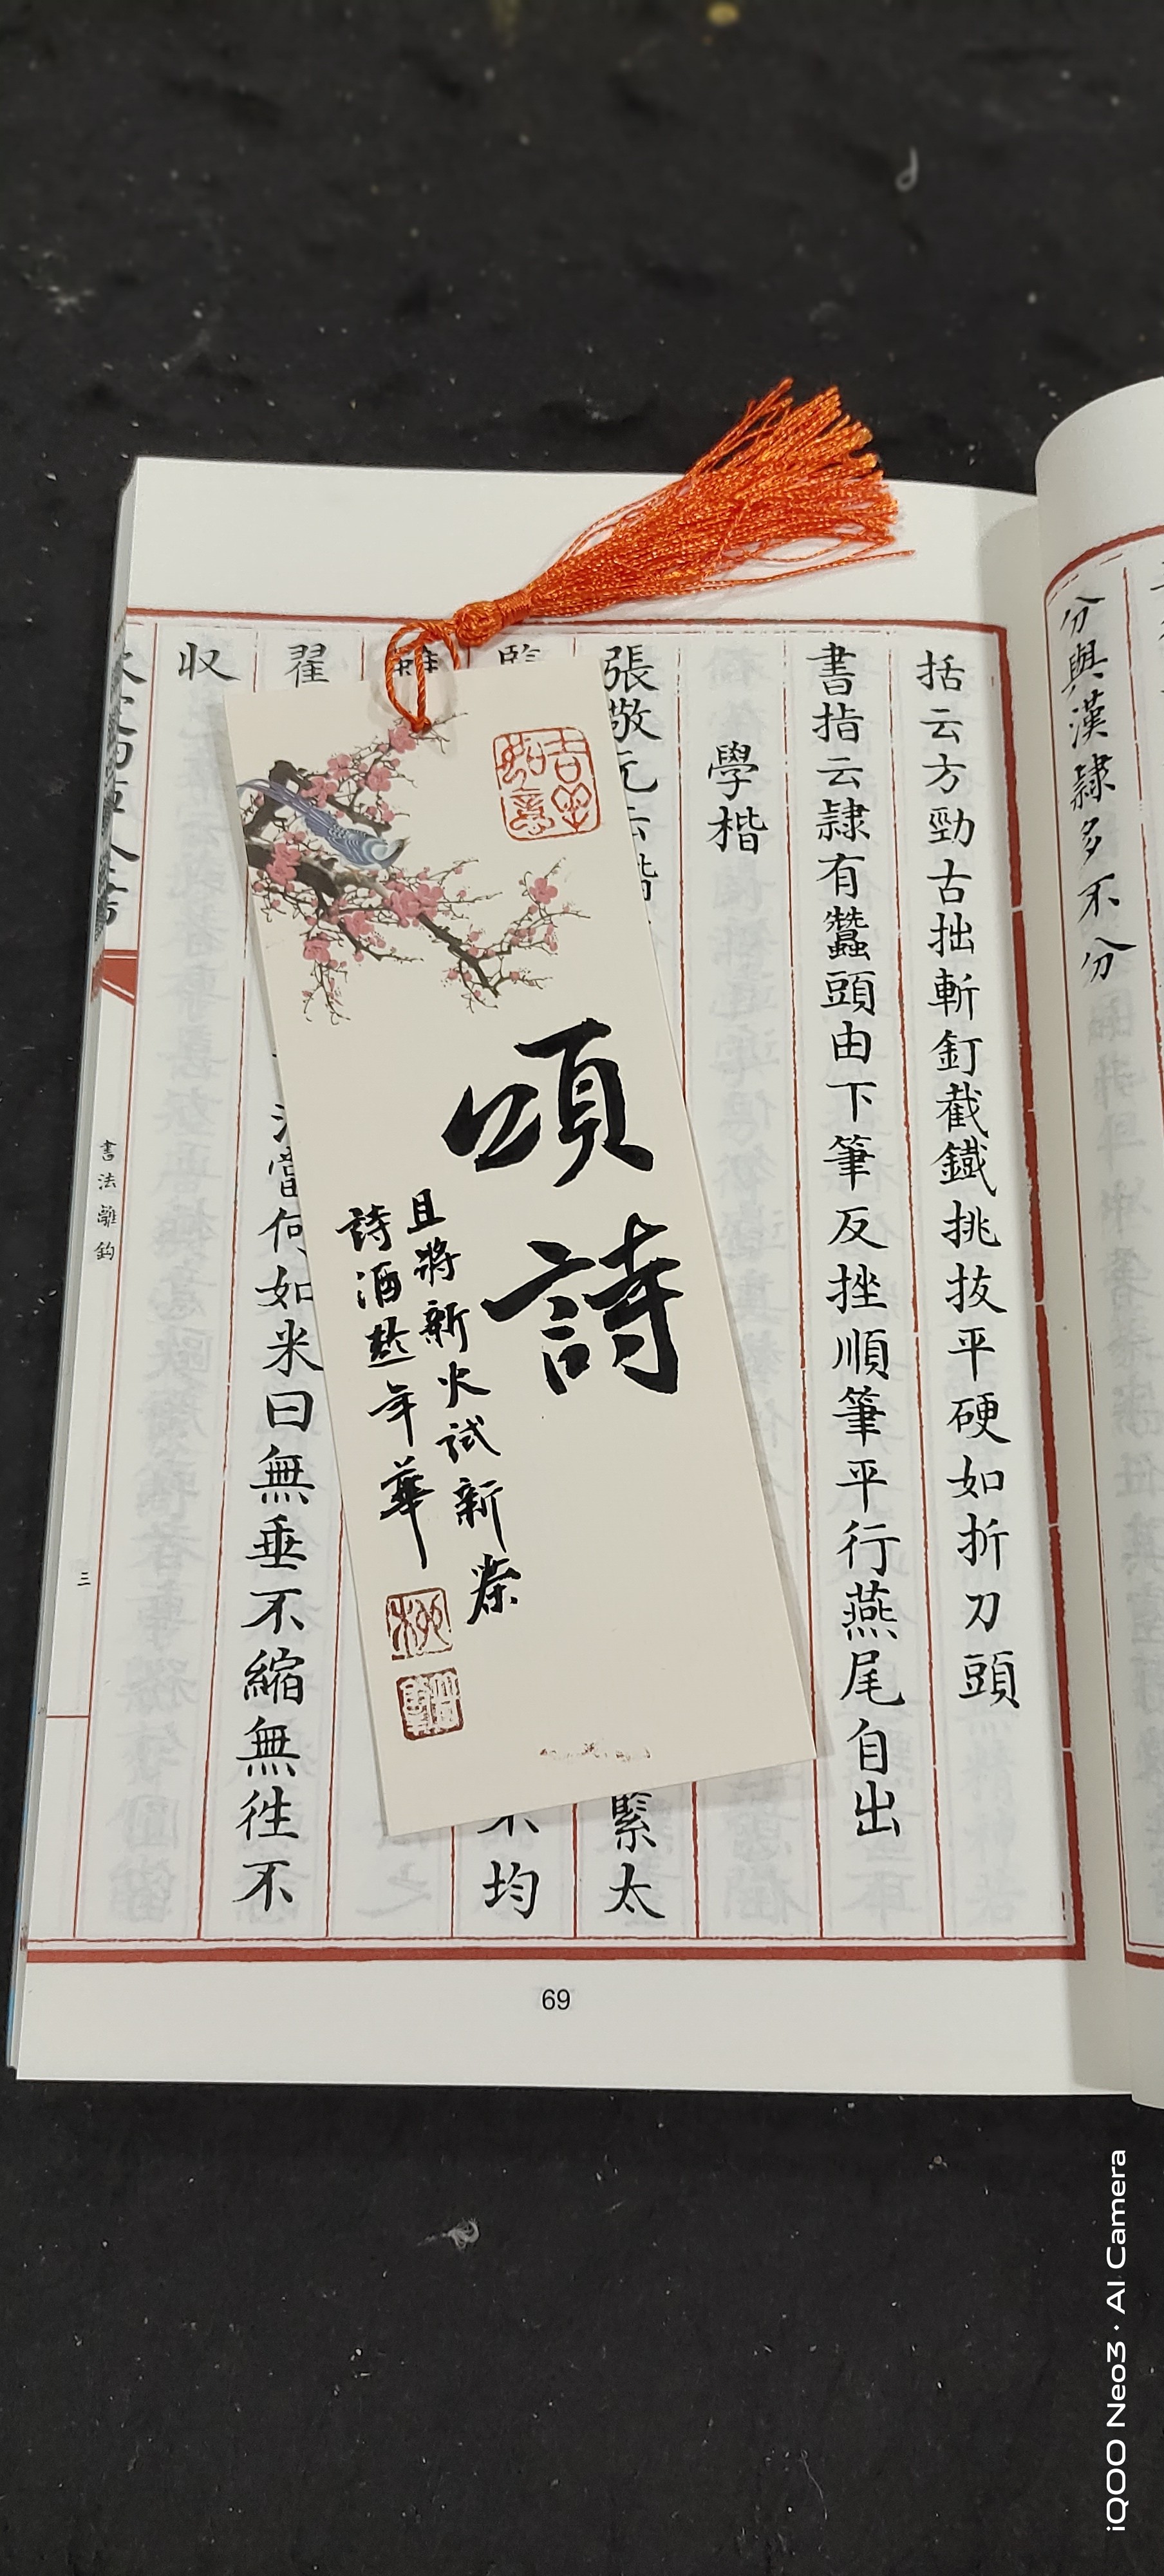 分與漢隸多不分
括云方勁古拙斬釘截鐵挑拔平硬如折刀頭
書指云隸有蠶頭由下筆反挫順筆平行燕尾自出
學楷
張敬元云楷
緊太
臨
均
翟
當何如米曰無垂不縮無往不
収
書法離鈎
三
頌詩
且將新火試新茶
詩酒趁年華
吉金
69
iQOO Neo3 · AI Camera